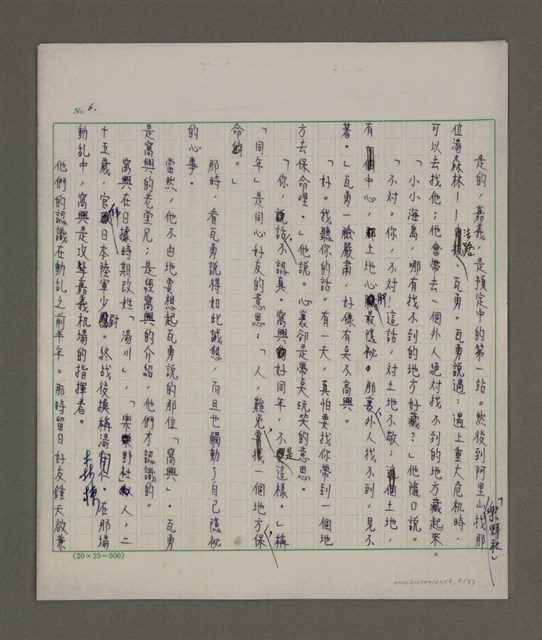 No. 6.
是的,嘉義,是預定中的第一站。然後到阿里山「樂野社」找那
位湯森林——法路、瓦勇。瓦勇說過:遇上重大危机時,
可以去找他;他會帶去一個外人絕對找不到的地方藏起來。
「小小海島,哪有找不到的地方好藏?」他隨口說。
「不對。你,不對。這話,對土地不敬,這個土地,
有個中心,土地心臟最隱秘。那裏外人找不到,見不
著。」瓦勇一臉嚴肅,好像有矣不高興。
「好。我聽你的話。有一天,真怕要找你帶到一個地
方去保命哩。」他說。心裏卻是帶矣玩笑的意思。
「你,說話不認真。窩興好同年,不是這樣。」稱
「同年」是同心好友的意思:「人,難免要找一個地方保
命的。」
那時,看瓦勇說得如此誠懇,而且也觸動了自己隱秘
的心事。
當然,他不由地要想起瓦勇說的那位「窩興」。瓦勇
是窩興的老堂兄;是經窩興的介紹,他們才認識的。
窩興在日據時期改姓「湯川」,「樂野社」人,二
十五歲,官拜日本陸軍少尉。終战後換稱湯
。在那場
動乱中,窩興是攻擊嘉義机場的指揮者。
他們的認識在動乱之前半年。那時留日好友鍾天啟兼
(20×25=500)